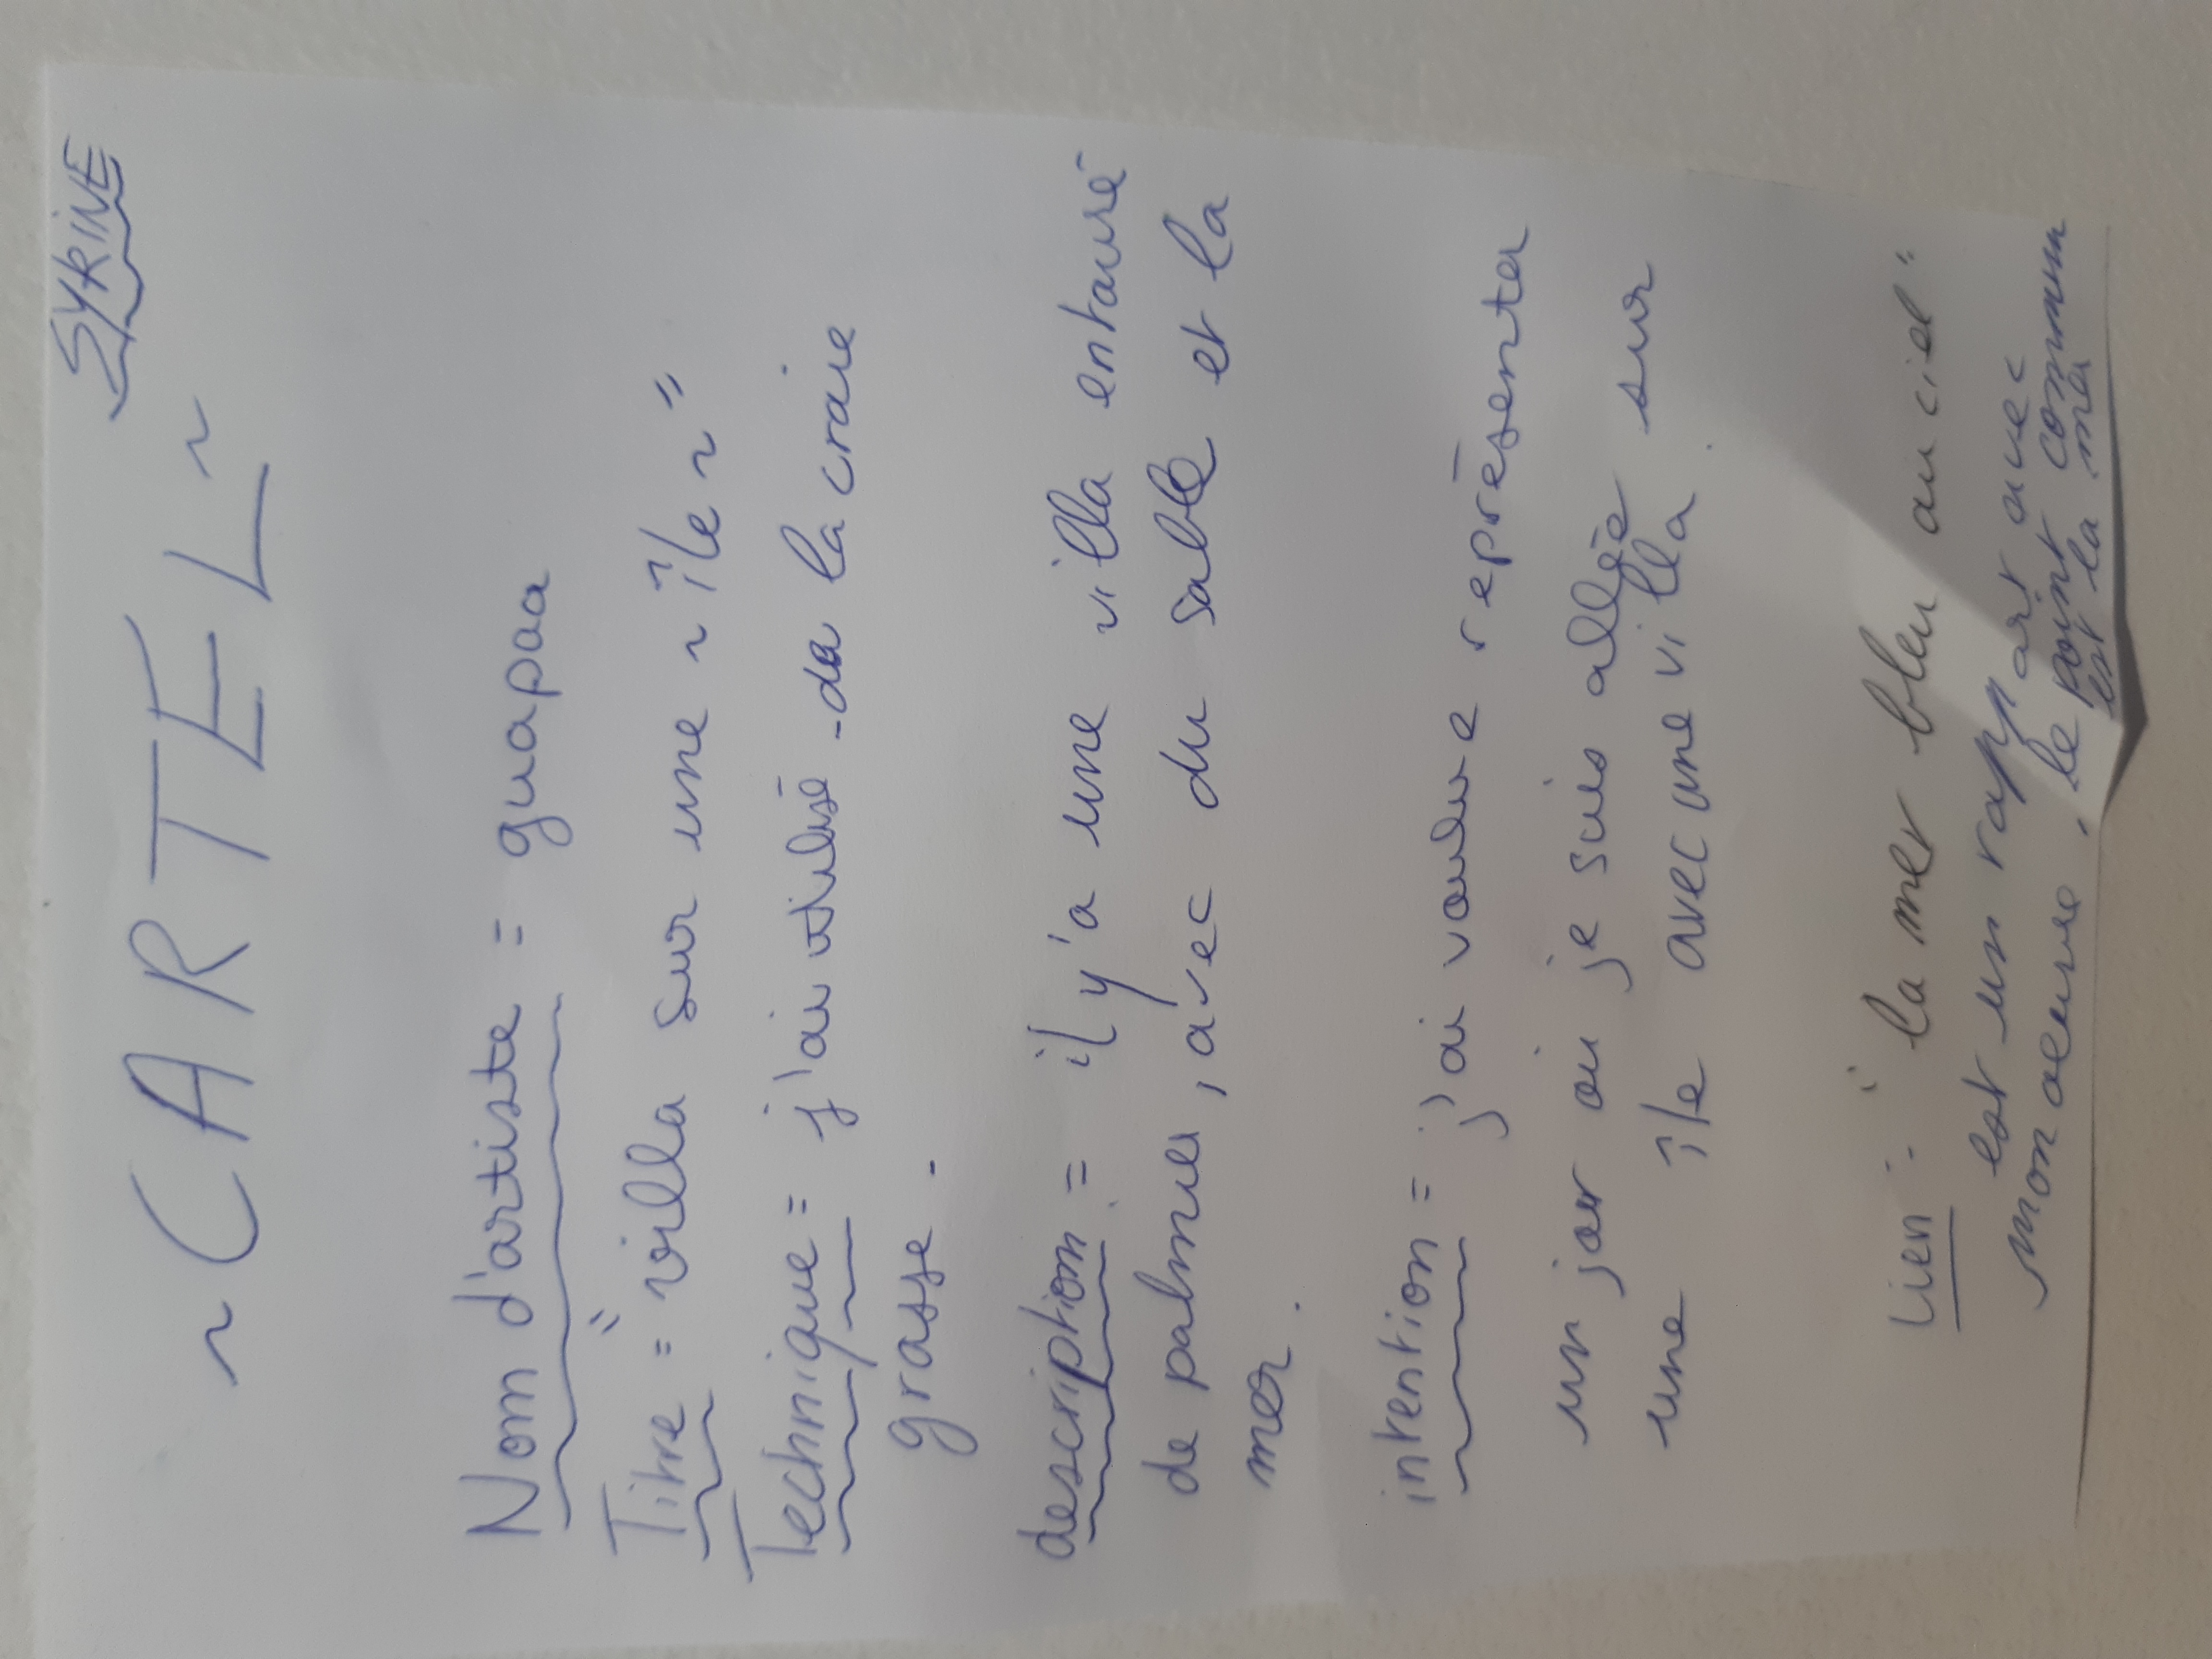 SYRINE
~ CARTEL ~
Nom d'artiste = guapaa
Titre = "villa sur une ~ île ~"
Technique = j'ai utilisé de la craie
grasse.
description = il y'a une villa entouré
de palmier, avec du sable et la
mer.
intention = j'ai voulu représenter
un jour où je suis allée sur
une île avec une villa
Lien : "la mer bleu au ciel"
est un rapport avec
mon œuvre, le point commun
est la mer